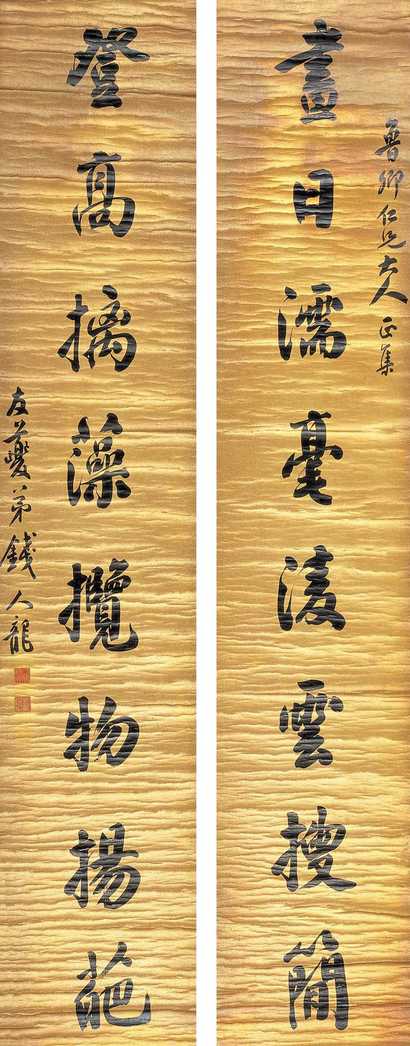 魯卿仁兄大人正集
盡日濡毫淩雲搜簡
登高摛藻攬物揚葩
友夔弟錢人龍